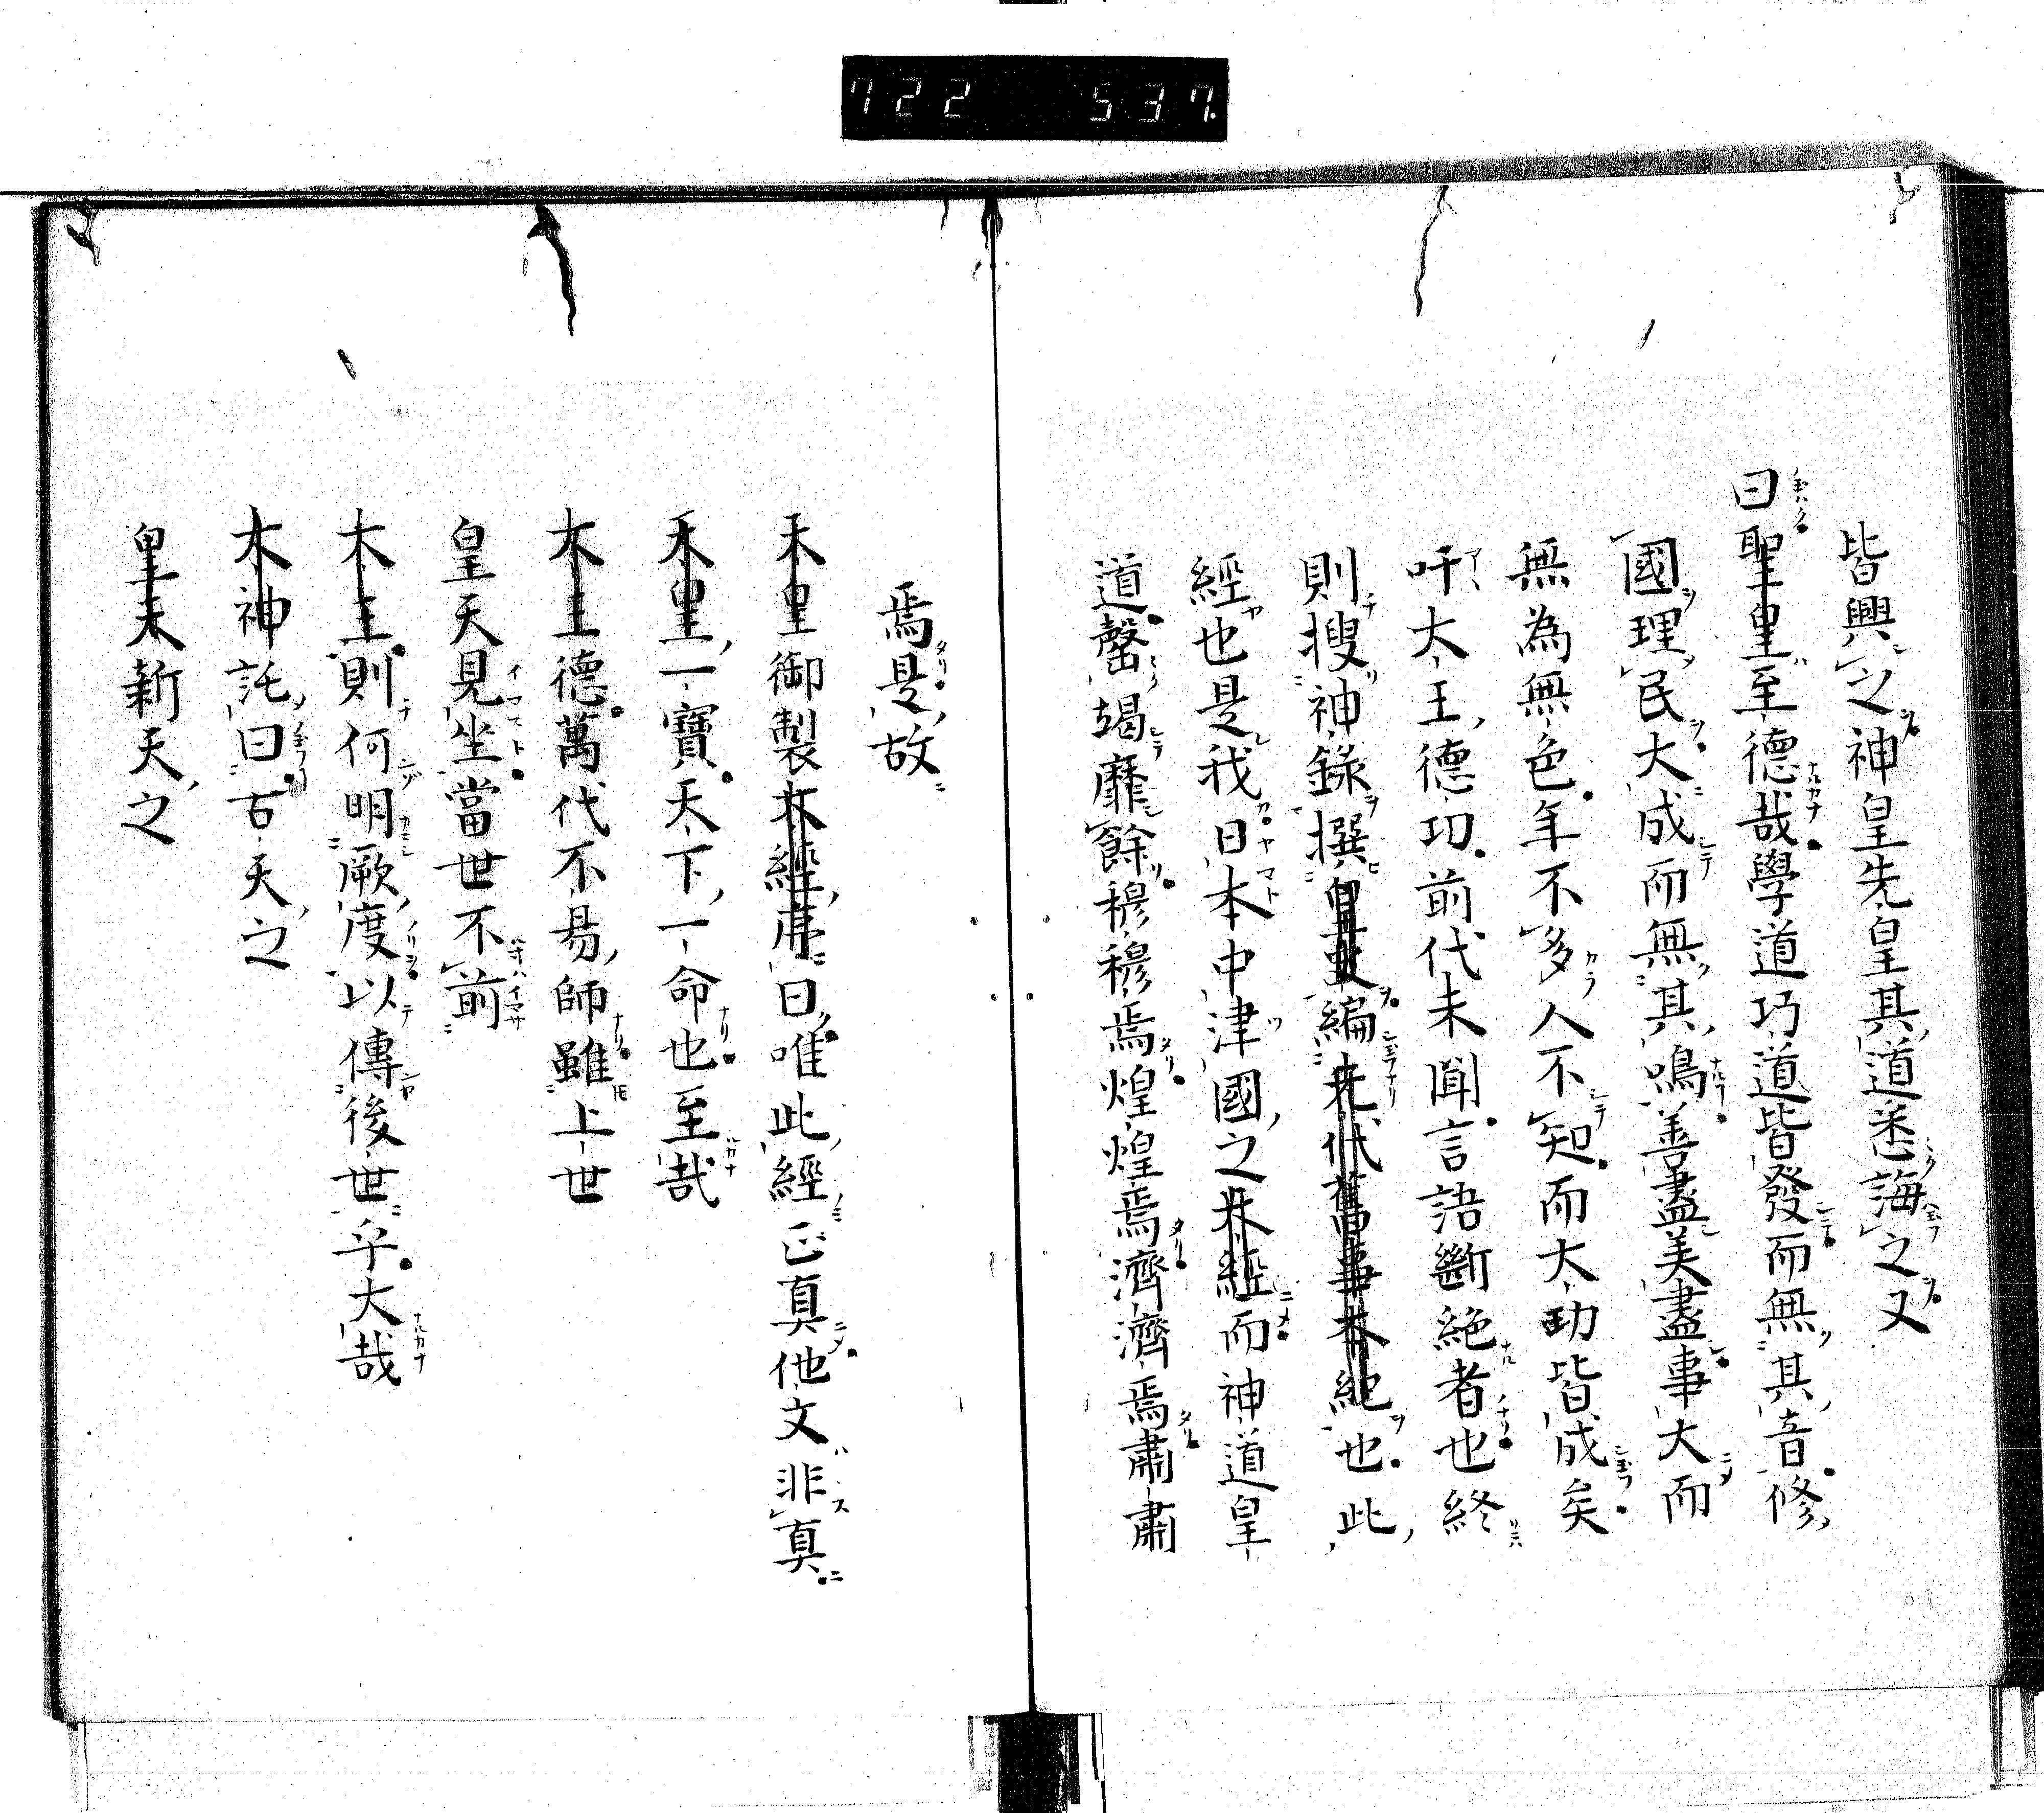 722 537.
皆興之神皇先皇其道悉誨之又
曰聖皇至德哉學道巧道皆發而無其音修
國理民大成而無其鳴善盡美盡事大而
無為無色年不多人不知而大功皆成矣
吁大王德功前代未聞言語斷絶者也終
則搜神錄撰皇史編先代舊事本紀也此
經也是我日本中津國之本經而神道皇
道罄竭靡餘穆穆焉煌煌焉濟濟焉肅肅
焉是故
天皇御製本經序曰唯此經正真他文非真
天皇一寶天下一命也至哉
大王德萬代不易師雖上世
皇天見坐當世不前
大王則何明厥度以傳後世乎大哉
大神託曰古天之
皇天新天之